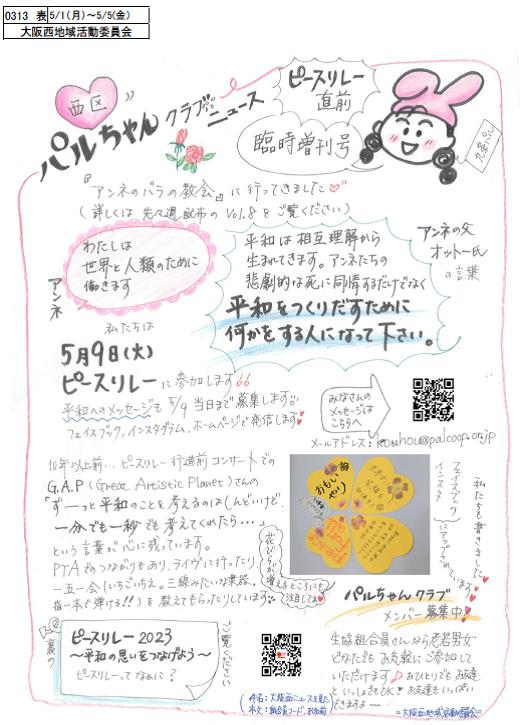 0313 表 5/1(月)～5/5(金)
大阪西地域活動委員会
西区
パルちゃんクラブニュース
ピースリレー
直前
臨時増刊号
『アンネのバラの教会』に行ってきました
(詳しくは 先々週配布の Vol.8をご覧ください)
わたしは
世界と人類のために
働きます
アンネ
平和は相互理解から
生まれてきます。アンネたちの
悲劇的な死に同情するだけでなく
平和をつくりだすために
何かをする人になって下さい。
アンネの父
オットー氏
の言葉
私たちは
5月9日(火)
ピースリレーに参加します
平和へのメッセージも5/9当日まで募集します。
フェイスブック、インスタグラム、ホームページで発信します
みなさんの
メッセージは
こちらへ
メールアドレス：kouhou@palcoop.or.jp
10年以上前…ピースリレー行進前コンサートでの
G.A.P(Great Artistic Planet)さんの
「ずーっと平和のことを考えるのはしんどいけど、
一分でも一秒でも考えてくれたら…」
という言葉が心に残っています。
PTAからつながりをもあり、ライヴに行ったり
一五一会(いちごいちえ。三線みたいな楽器。
指一本で弾ける!!)を教えてもらったりしています
おもいやり
花びらが
増えるところにも
注目してね
私たちも書きました
フェイスブック
インスタ
にアップされています
パルちゃんクラブ
メンバー募集中!
生協組合員さんなら老若男女
どなたでもお気軽にご参加して
いただけます♪おひとりでもお友達
といっしょもOK!お友達もいっぱい
できますよ～
裏の
ピースリレー2023
～平和の思いをつなげよう～
ピースリレーってなぁに？
ご覧ください
件名：大阪西ニュースを見た
本文：組合員コード、お名前
＝大阪西地域活動委員会＝